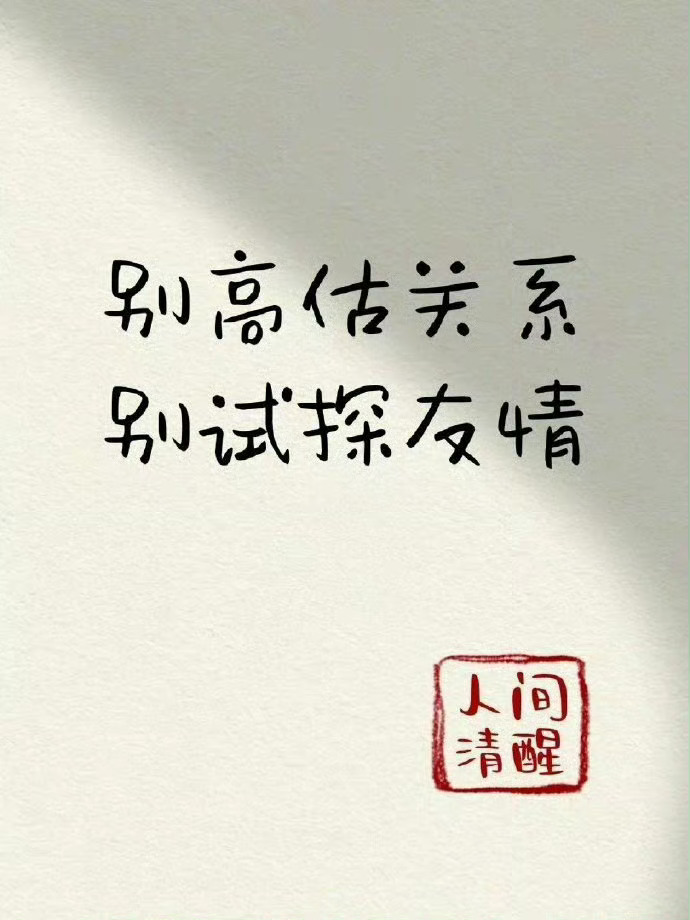 别高估关系
别试探友情
人间
清醒